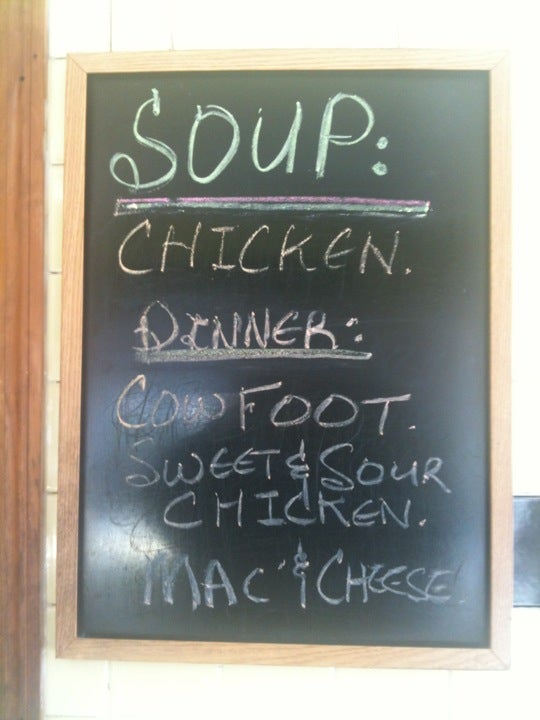 SOUP:
CHICKEN.
DINNER:
COW FOOT.
SWEET & SOUR
CHICKEN.
MAC & CHEESE.